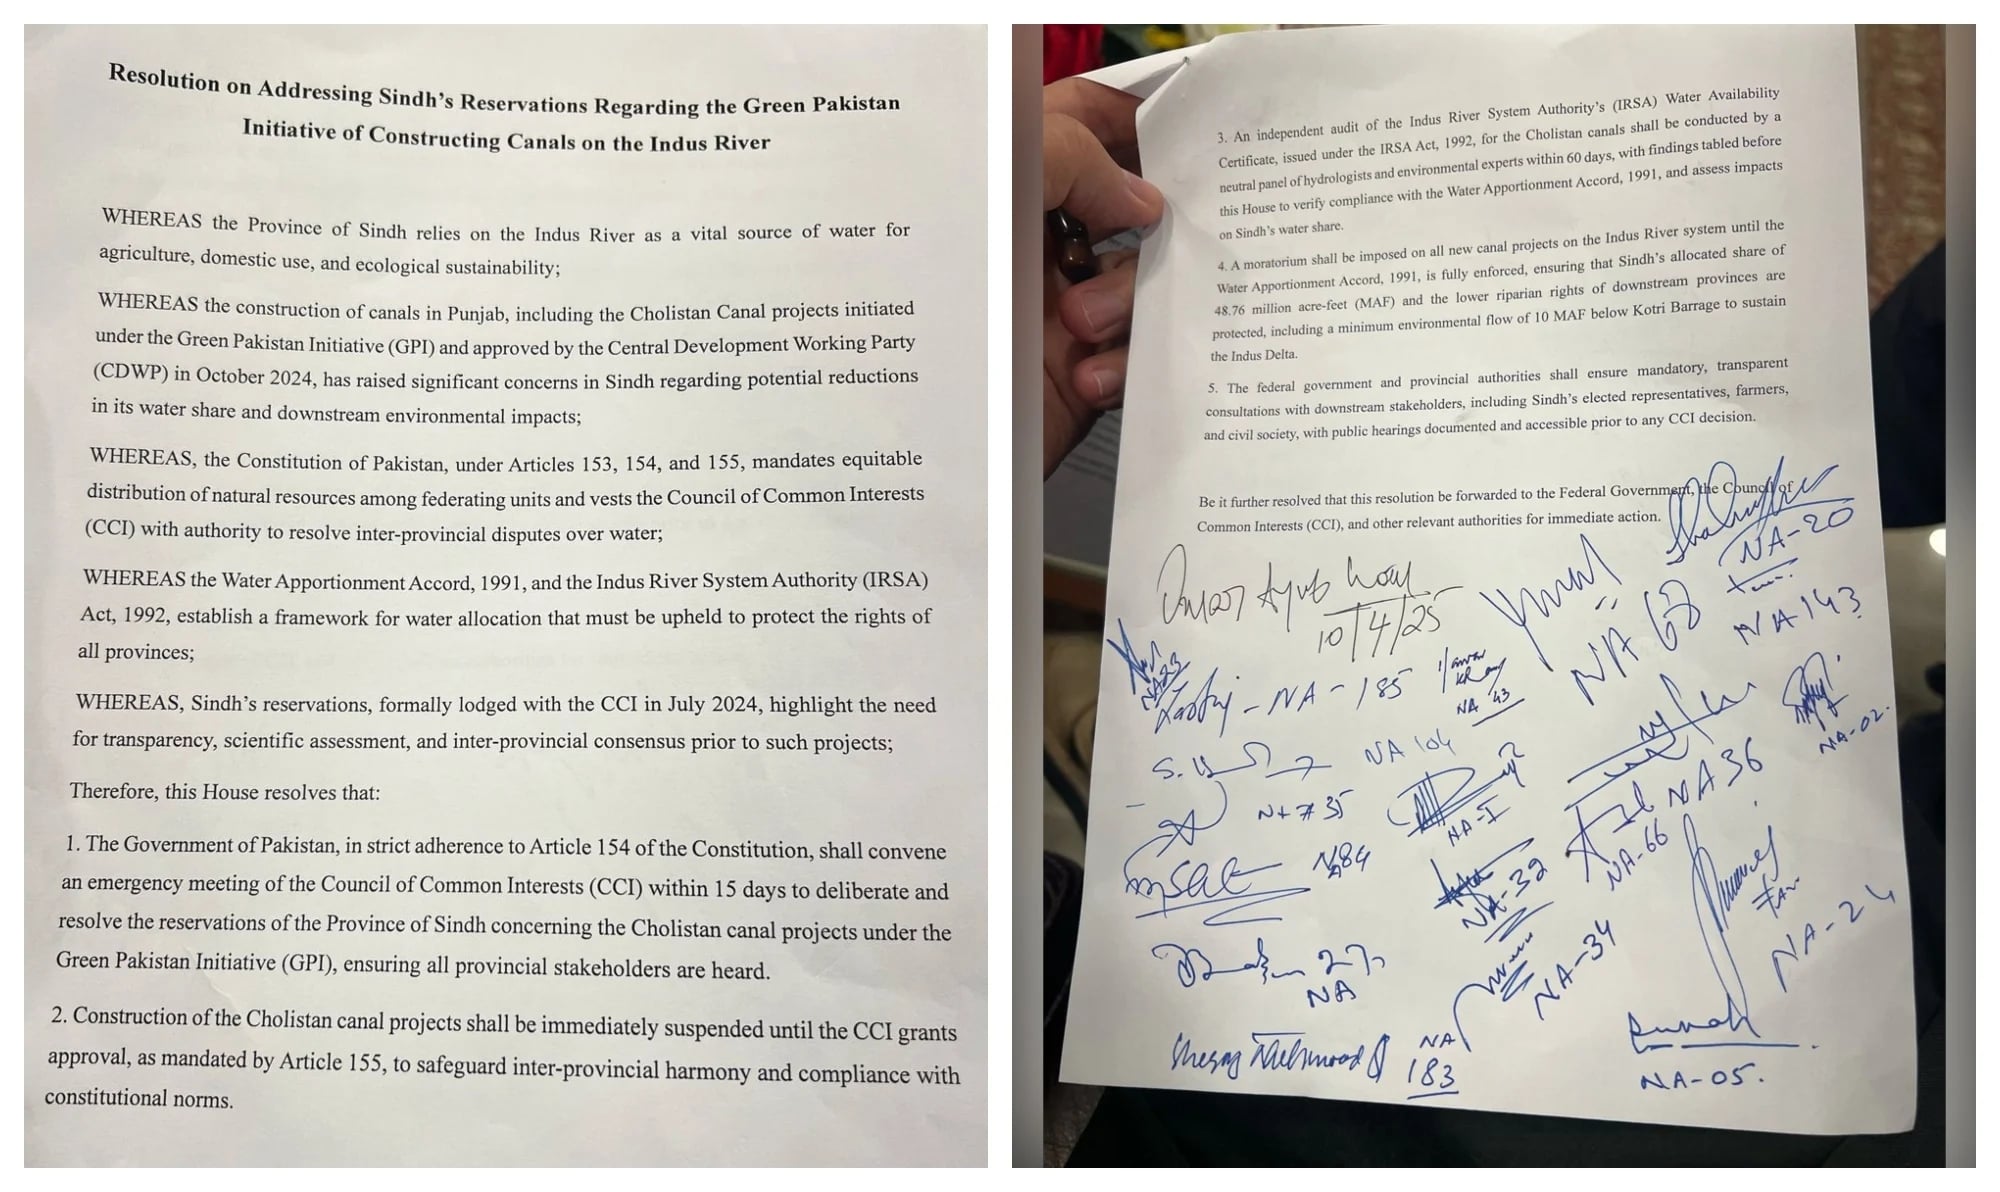 Resolution on Addressing Sindh's Reservations Regarding the Green Pakistan
Initiative of Constructing Canals on the Indus River
WHEREAS the Province of Sindh relies on the Indus River as a vital source of water for
agriculture, domestic use, and ecological sustainability;
WHEREAS the construction of canals in Punjab, including the Cholistan Canal projects initiated
under the Green Pakistan Initiative (GPI) and approved by the Central Development Working Party
(CDWP) in October 2024, has raised significant concerns in Sindh regarding potential reductions
in its water share and downstream environmental impacts;
WHEREAS, the Constitution of Pakistan, under Articles 153, 154, and 155, mandates equitable
distribution of natural resources among federating units and vests the Council of Common Interests
(CCI) with authority to resolve inter-provincial disputes over water;
WHEREAS the Water Apportionment Accord, 1991, and the Indus River System Authority (IRSA)
Act, 1992, establish a framework for water allocation that must be upheld to protect the rights of
all provinces;
WHEREAS, Sindh's reservations, formally lodged with the CCI in July 2024, highlight the need
for transparency, scientific assessment, and inter-provincial consensus prior to such projects;
Therefore, this House resolves that:
1. The Government of Pakistan, in strict adherence to Article 154 of the Constitution, shall convene
an emergency meeting of the Council of Common Interests (CCI) within 15 days to deliberate and
resolve the reservations of the Province of Sindh concerning the Cholistan canal projects under the
Green Pakistan Initiative (GPI), ensuring all provincial stakeholders are heard.
2. Construction of the Cholistan canal projects shall be immediately suspended until the CCI grants
approval, as mandated by Article 155, to safeguard inter-provincial harmony and compliance with
constitutional norms.
3. An independent audit of the Indus River System Authority's (IRSA) Water Availability
Certificate, issued under the IRSA Act, 1992, for the Cholistan canals shall be conducted by a
neutral panel of hydrologists and environmental experts within 60 days, with findings tabled before
this House to verify compliance with the Water Apportionment Accord, 1991, and assess impacts
on Sindh's water share.
4. A moratorium shall be imposed on all new canal projects on the Indus River system until the
Water Apportionment Accord, 1991, is fully enforced, ensuring that Sindh's allocated share of
48.76 million acre-feet (MAF) and the lower riparian rights of downstream provinces are
protected, including a minimum environmental flow of 10 MAF below Kotri Barrage to sustain
the Indus Delta.
5. The federal government and provincial authorities shall ensure mandatory, transparent
consultations with downstream stakeholders, including Sindh's elected representatives, farmers,
and civil society, with public hearings documented and accessible prior to any CCI decision.
Be it further resolved that this resolution be forwarded to the Federal Government, the Council of
Common Interests (CCI), and other relevant authorities for immediate action.
NA-20
Omar Ayub
10/4/25
NA 68
NA 143
NA 23
NA-185
NA 43
NA-02.
NA 104
NA 36
NA # 35
NA-I
NA-66
NA 84
NA-32
NA-24
27
NA
NA-34
NA
183
NA-05.